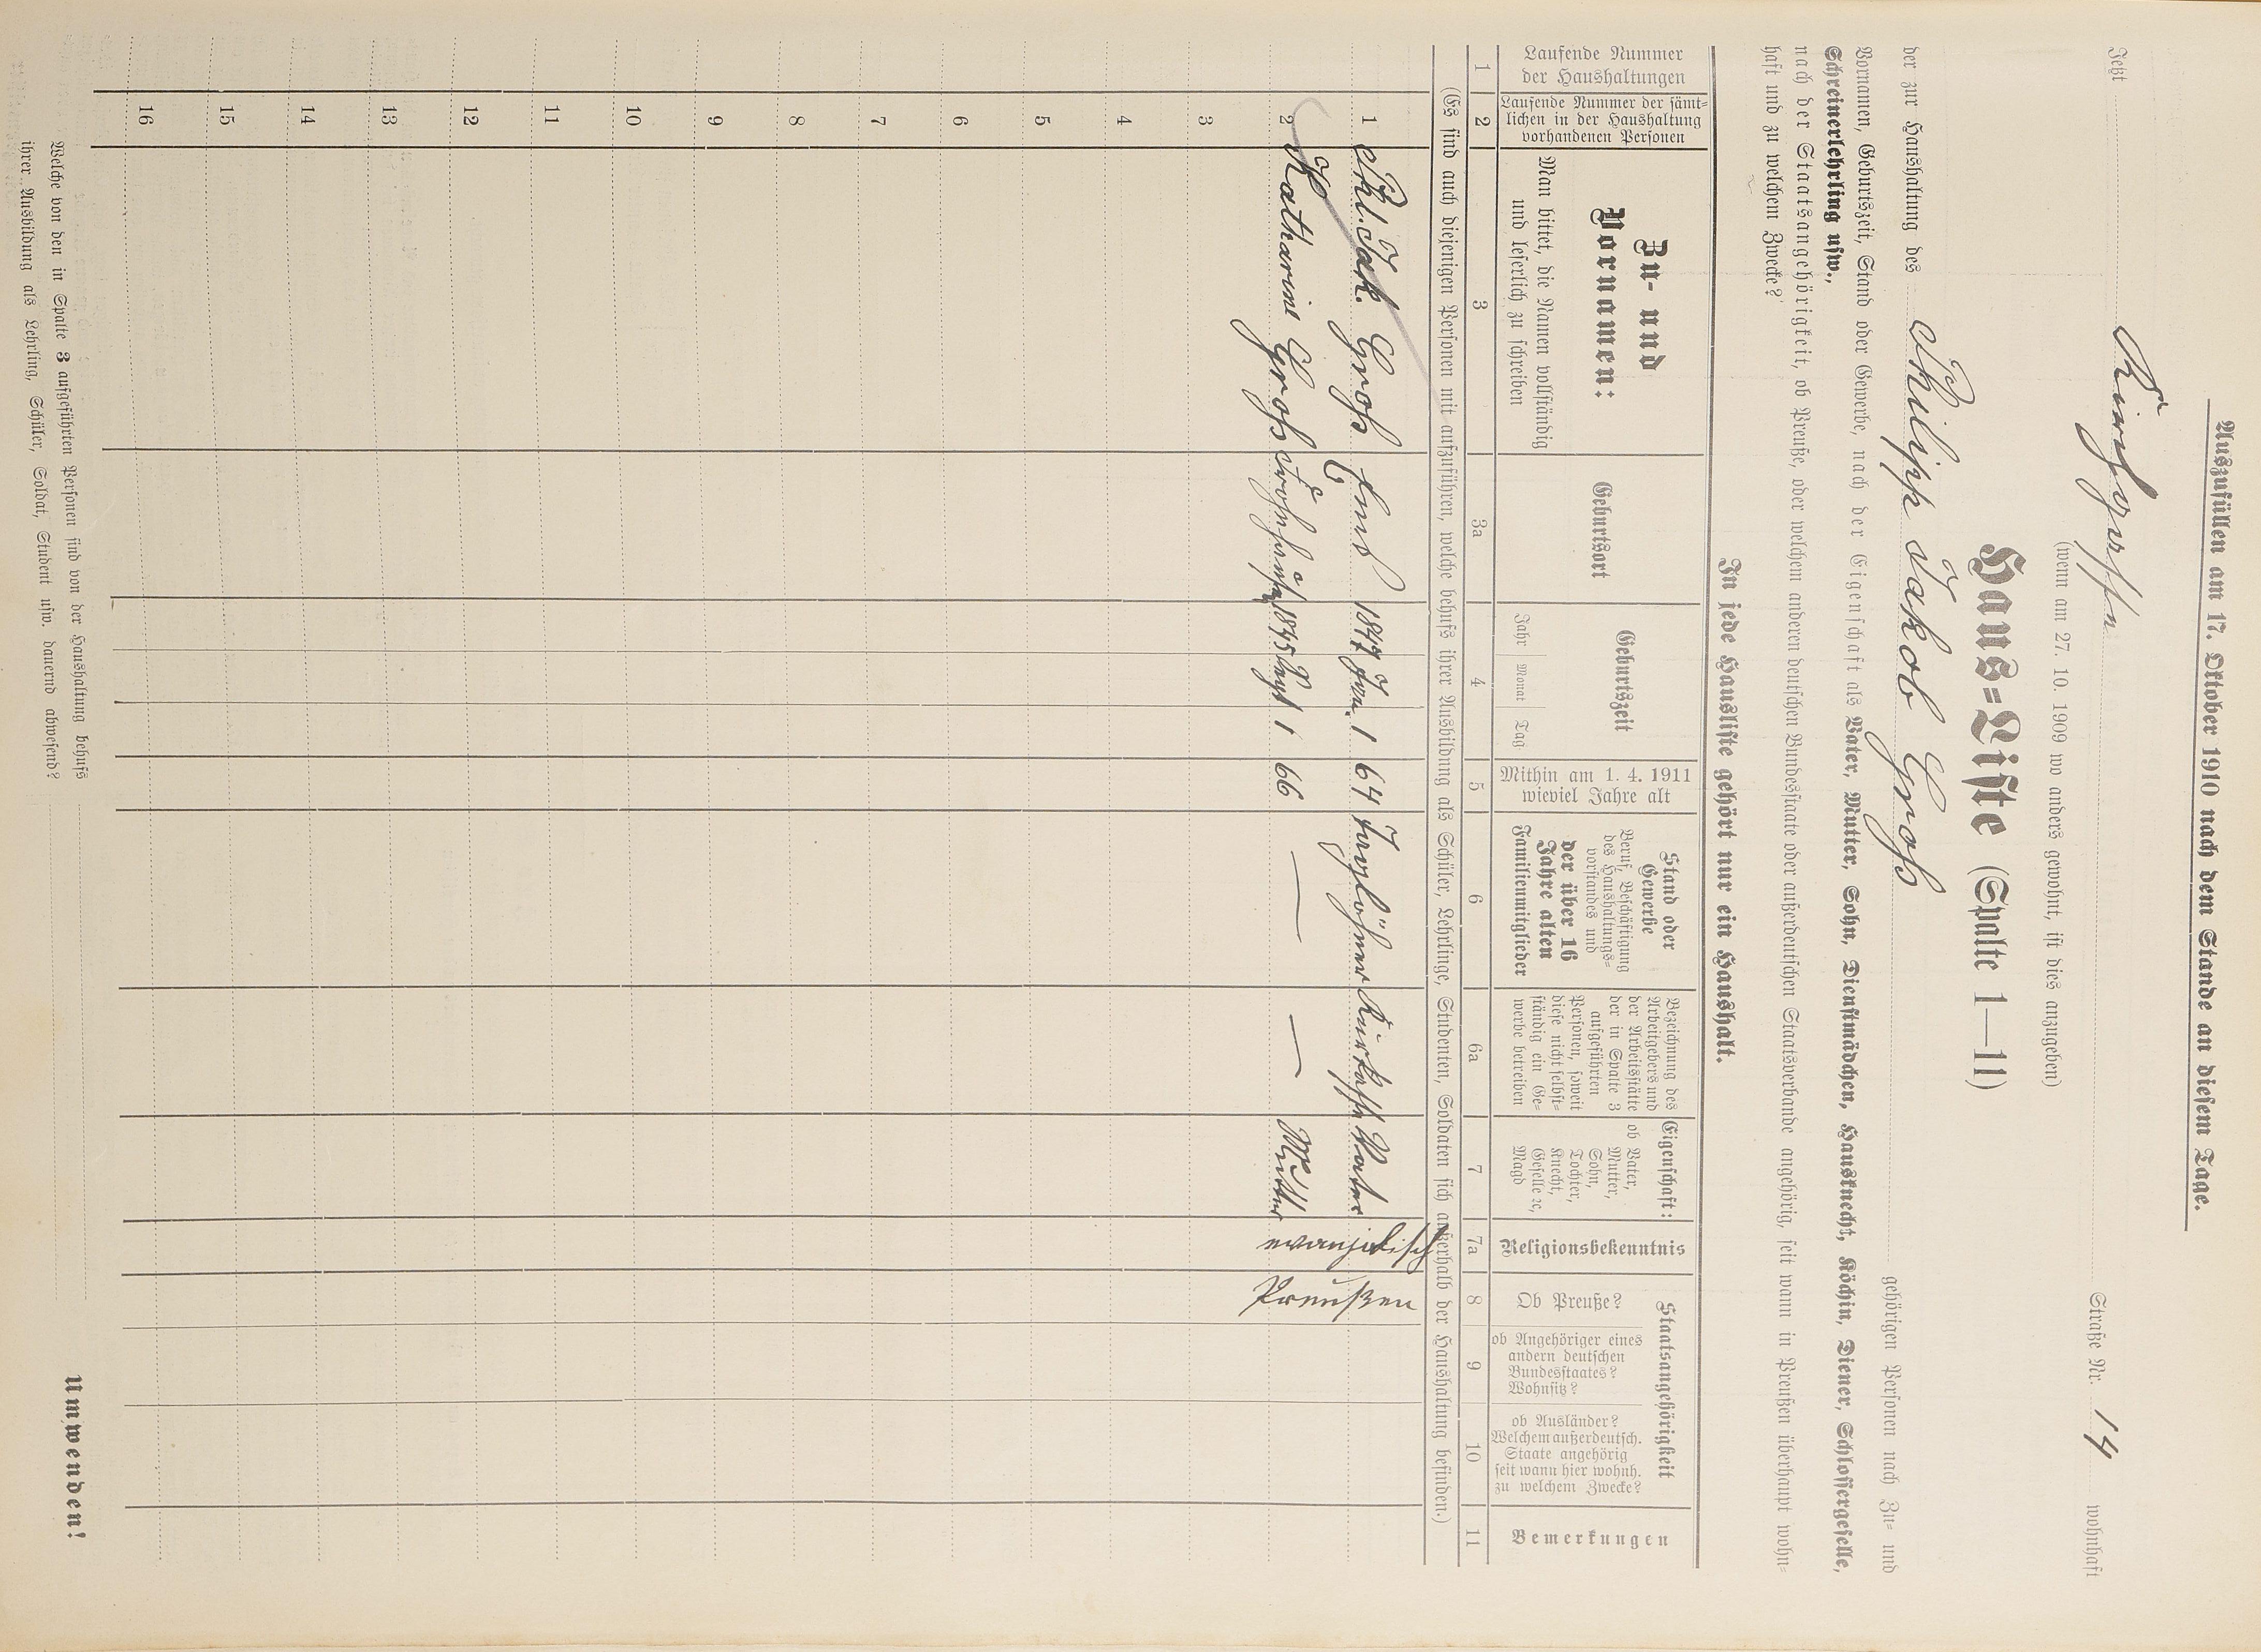 Auszufüllen am 17. Oktober 1910 nach dem Stande an diesem Tage.
Jetzt Straße Nr. 14 wohnhaft
(wenn am 27. 10. 1909 wo anders gewohnt, ist dies anzugeben)
Haus=Liste (Spalte 1—11)
der zur Haushaltung des Philipp Jakob Groß gehörigen Personen nach Zu= und
Vornamen, Geburtszeit, Stand oder Gewerbe, nach der Eigenschaft als Vater, Mutter, Sohn, Dienstmädchen, Hausknecht, Köchin, Diener, Schlossergeselle,
Schreinerlehrling usw.,
nach der Staatsangehörigkeit, ob Preuße, oder welchem anderen deutschen Bundesstaate oder außerdeutschen Staatsverbande angehörig, seit wann in Preußen überhaupt wohn=
haft und zu welchem Zwecke?
In jede Hausliste gehört nur ein Haushalt.
Laufende Nummer
der Haushaltungen
Laufende Nummer der sämt=
lichen in der Haushaltung
vorhandenen Personen
Zu- und
Vornamen:
Man bittet, die Namen vollständig
und leserlich zu schreiben
Geburtsort
Geburtszeit
Jahr Monat Tag
Mithin am 1. 4. 1911
wieviel Jahre alt
Stand oder
Gewerbe
Beruf, Beschäftigung
des Haushaltungs=
vorstandes und
der über 16
Jahre alten
Familienmitglieder
Bezeichnung des
Arbeitgebers und
der Arbeitsstätte
der in Spalte 3
aufgeführten
Personen, soweit
diese nicht selbst=
ständig ein Ge=
werbe betreiben
Eigenschaft:
ob Vater,
Mutter,
Sohn,
Tochter,
Knecht,
Geselle ꝛc,
Magd
Religionsbekenntnis
Staatsangehörigkeit
Ob Preuße?
ob Angehöriger eines
andern deutschen
Bundesstaates?
Wohnsitz?
ob Ausländer?
Welchem außerdeutsch.
Staate angehörig
seit wann hier wohnh.
zu welchem Zwecke?
Bemerkungen
1 2 3 3a 4 5 6 6a 7 7a 8 9 10 11
(Es sind auch diejenigen Personen mit aufzuführen, welche behufs ihrer Ausbildung als Schüler, Lehrlinge, Studenten, Soldaten sich außerhalb der Haushaltung befinden.)
1 Phl. Jak. Groß Ems 1847 Jan. 1 64 Taglöhner Vater evangelisch Preußen
2 Katharine Groß 1845 1 66 — — Mutter
3
4
5
6
7
8
9
10
11
12
13
14
15
16
Welche von den in Spalte 3 aufgeführten Personen sind von der Haushaltung behufs
ihrer Ausbildung als Lehrling, Schüler, Soldat, Student usw. dauernd abwesend?
Umwenden!